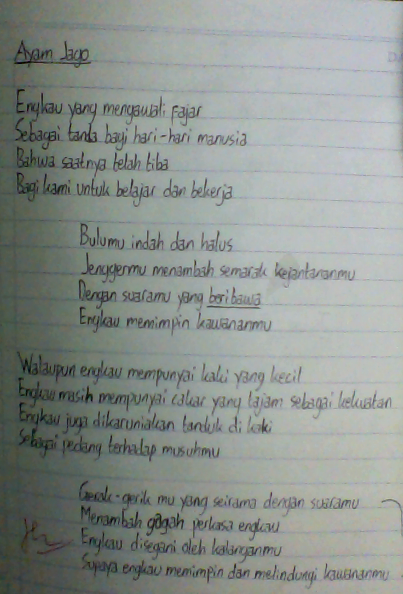 Ayam Jago
Engkau yang mengawali fajar
Sebagai tanda bagi hari-hari manusia
Bahwa saatnya telah tiba
Bagi kami untuk belajar dan bekerja
Bulumu indah dan halus
Jenggermu menambah semarak kejantananmu
Dengan suaramu yang beribawa
Engkau memimpin kawananmu
Walaupun engkau mempunyai kaki yang kecil
Engkau masih mempunyai cakar yang tajam sebagai kekuatan
Engkau juga dikaruniakan tanduk di kaki
Sebagai pedang terhadap musuhmu
Gerak-gerik mu yang seirama dengan suaramu
Menambah gagah perkasa engkau
Engkau disegani oleh kalanganmu
Supaya engkau memimpin dan melindungi kawananmu